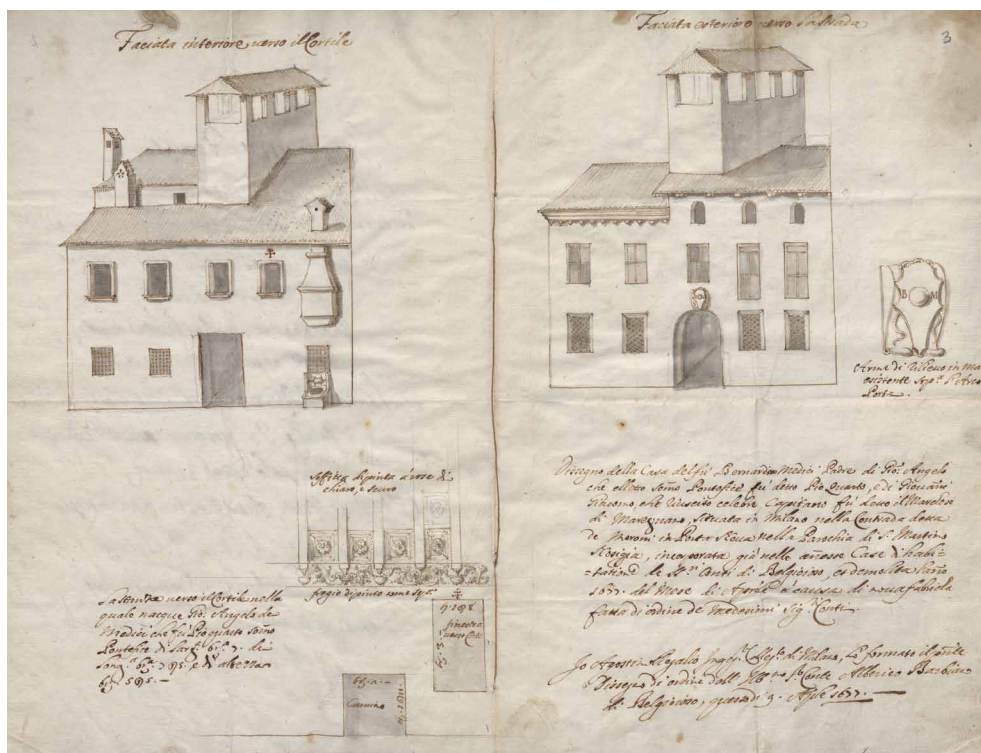 Faciata interiore verso il Cortile
Faciata esteriore verso la strada
3
B M
Arme di rilievo in
esistente sopa l'Arco
Porta.
soffitta dipinta à rose di
chiaro, e scuro
fregio dipinto come sopa
La stanza verso il Cortile nella
quale nacque Gio. Angelo de
Medici che fù Pio quarto somo
Pontefice di larga
e di altezza
finestra
verso Corte
Camino
Disegno della Casa del fù Bernardino Medici Padre di Gio. Angelo
che eletto somo Pontefice fu detto Pio Quarto, e di Giovani
Giacomo, che riuscito celebre Capitano fù detto il Marchese
di Maregnano, situata in Milano nella Contrada detta
de Moroni in Porta Nova nella Parochia di S. Martino
Nosigia, incorporata già nelle annesse Case d'habi=
=tatione de Sri Conti di Belgioioso, et demolita l'ano
1677. del Mese di Aprile à causa di nova fabrica
fatta di ordine de medesimi Sigri Conti.
Io Agostin di Milano, hò formato il pnte
Disegno d'ordine dell' Illmo Sr Conte Alberico Barbiano
di Belgioioso, questo dì 9. Aple 1677.